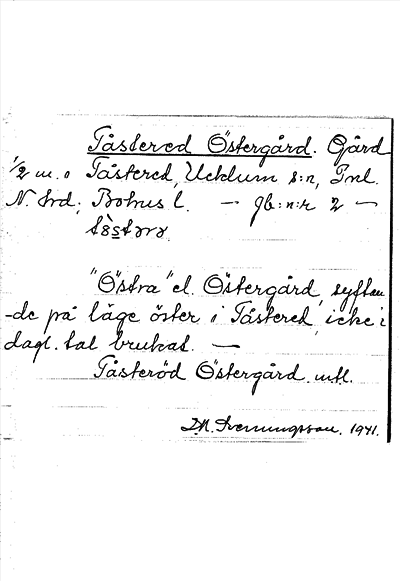 Tåstered Östergård. Gård
1/2 m. o Tåstered, Ucklum s:n, Inl.
N. hrd; Bohus l. — gb:n:r 2 —
"Östra" el. Östergård, syftan
-de på läge öster i Tåstered, icke i
dagl. tal brukat. —
Tåsteröd Östergård. mtl.
1941.